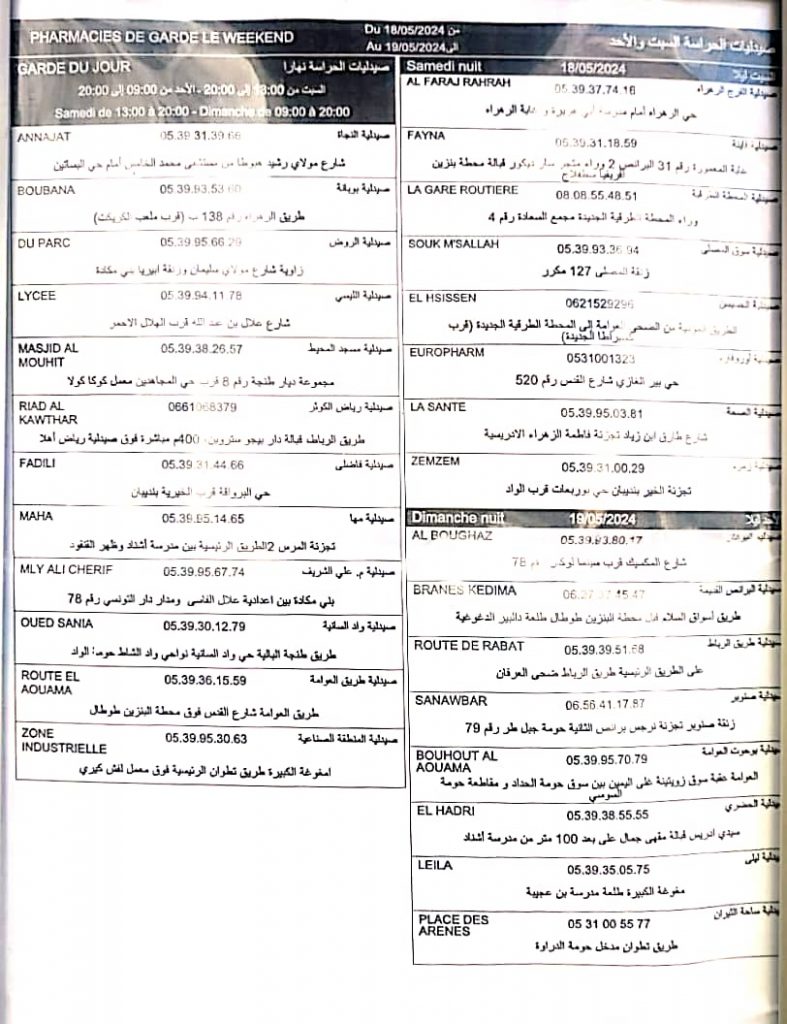 PHARMACIES DE GARDE LE WEEKEND
Du 18/05/2024 من
Au 19/05/2024 إلى
صيدليات الحراسة السبت والأحد
GARDE DU JOUR صيدليات الحراسة نهارا
السبت من 13:00 إلى 20:00 - الأحد من 09:00 إلى 20:00
Samedi de 13:00 à 20:00 - Dimanche de 09:00 à 20:00
ANNAJAT 05.39.31.39.66 صيدلية النجاة
شارع مولاي رشيد هبوطا من مستشفى محمد الخامس أمام حي البساتين
BOUBANA 05.39.93.53.60 صيدلية بوبانة
طريق الزهراء رقم 138 ب (قرب ملعب الكريكت)
DU PARC 05.39.95.66.29 صيدلية الروض
زاوية شارع مولاي سليمان وزنقة ايبيريا حي مكادة
LYCEE 05.39.94.11.78 صيدلية الليسي
شارع علال بن عبد الله قرب الهلال الاحمر
MASJID AL MOUHIT 05.39.38.26.57 صيدلية مسجد المحيط
مجموعة ديار طنجة رقم 8 قرب حي المجاهدين معمل كوكا كولا
RIAD AL KAWTHAR 0661068379 صيدلية رياض الكوثر
طريق الرباط قبالة دار بيجو ستروين، 400م مباشرة فوق صيدلية رياض أهلا
FADILI 05.39.31.44.66 صيدلية فاضلي
حي البرواقة قرب الخيرية بلديبان
MAHA 05.39.95.14.65 صيدلية مها
تجزئة المرس 2الطريق الرئيسية بين مدرسة أشناد وظهر القنفود
MLY ALI CHERIF 05.39.95.67.74 صيدلية م. علي الشريف
بلي مكادة بين اعدادية علال الفاسي ومدار دار التونسي رقم 78
OUED SANIA 05.39.30.12.79 صيدلية واد السانية
طريق طنجة البالية حي واد السانية نواحي واد الشاط حومة الواد
ROUTE EL AOUAMA 05.39.36.15.59 صيدلية طريق العوامة
طريق العوامة شارع القدس فوق محطة البنزين طوطال
ZONE INDUSTRIELLE 05.39.95.30.63 صيدلية المنطقة الصناعية
امغوغة الكبيرة طريق تطوان الرئيسية فوق معمل لفش كيري
Samedi nuit 18/05/2024 السبت ليلا
AL FARAJ RAHRAH 05.39.37.74.16 صيدلية الفرج الزهراء
حي الزهراء أمام مدرسة أبي هريرة و غابة الزهراء
FAYNA 05.39.31.18.59 صيدلية
رقم 31 البرانص 2 وراء متجر ديكور قبالة محطة بنزين
أفريقيا
LA GARE ROUTIERE 08.08.55.48.51 صيدلية المحطة الطرقية
وراء المحطة الطرقية الجديدة مجمع السعادة رقم 4
SOUK M'SALLAH 05.39.93.36.94 صيدلية سوق المصلى
زنقة المصلى 127 مكرر
EL HSISSEN 0621529296 صيدلية الحسيسن
الطريق من العوامة إلى المحطة الطرقية الجديدة (قرب
الجديدة)
EUROPHARM 0531001323 صيدلية
حي بير الغازي شارع القدس رقم 520
LA SANTE 05.39.95.03.81 صيدلية الصحة
شارع طارق ابن زياد تجزئة فاطمة الزهراء الادريسية
ZEMZEM 05.39.31.00.29 صيدلية زمزم
تجزئة الخير بلديبان حي بوربعات قرب الواد
Dimanche nuit 19/05/2024 الأحد ليلا
AL BOUGHAZ 05.39.93.80.17 صيدلية البوغاز
شارع المكسيك قرب سينما لوكس رقم 78
BRANES KEDIMA 45.47 صيدلية البرانص القديمة
طريق أسواق السلام قبل محطة البنزين طوطال طلعة دالبير الدغوغية
ROUTE DE RABAT 05.39.39.51.68 صيدلية طريق الرباط
على الطريق الرئيسية طريق الرباط ضحى العرفان
SANAWBAR 06.56.41.17.87 صيدلية صنوبر
زنقة صنوبر تجزئة نرجس برانص الثانية حومة جبل طر رقم 79
BOUHOUT AL AOUAMA 05.39.95.70.79 صيدلية بوحوت العوامة
العوامة عقبة سوق زويتينة على اليمين بين سوق حومة الحداد و مقاطعة حومة
السوسي
EL HADRI 05.39.38.55.55 صيدلية الحضري
سيدي ادريس قبالة مقهى جمال على بعد 100 متر من مدرسة أشناد
LEILA 05.39.35.05.75 صيدلية ليلى
مغوغة الكبيرة طلعة مدرسة بن عجيبة
PLACE DES ARENES 05 31 00 55 77 صيدلية ساحة الثيران
طريق تطوان مدخل حومة الدراوة